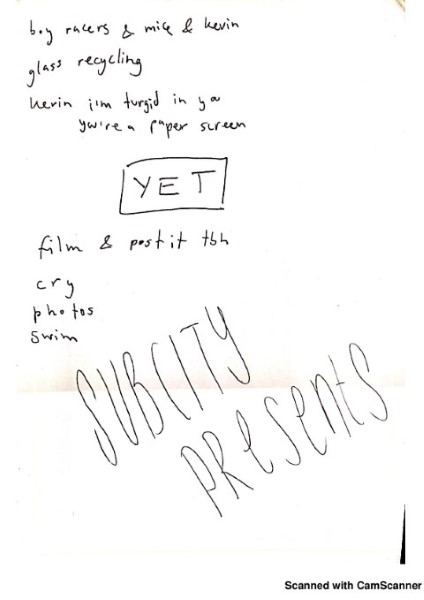 boy racers & mice & kevin
glass recycling
kevin i'm turgid in ya
you're a paper screen
YET
film & post it tbh
cry
photos
swim
SUBCITY
PResents
Scanned with CamScanner